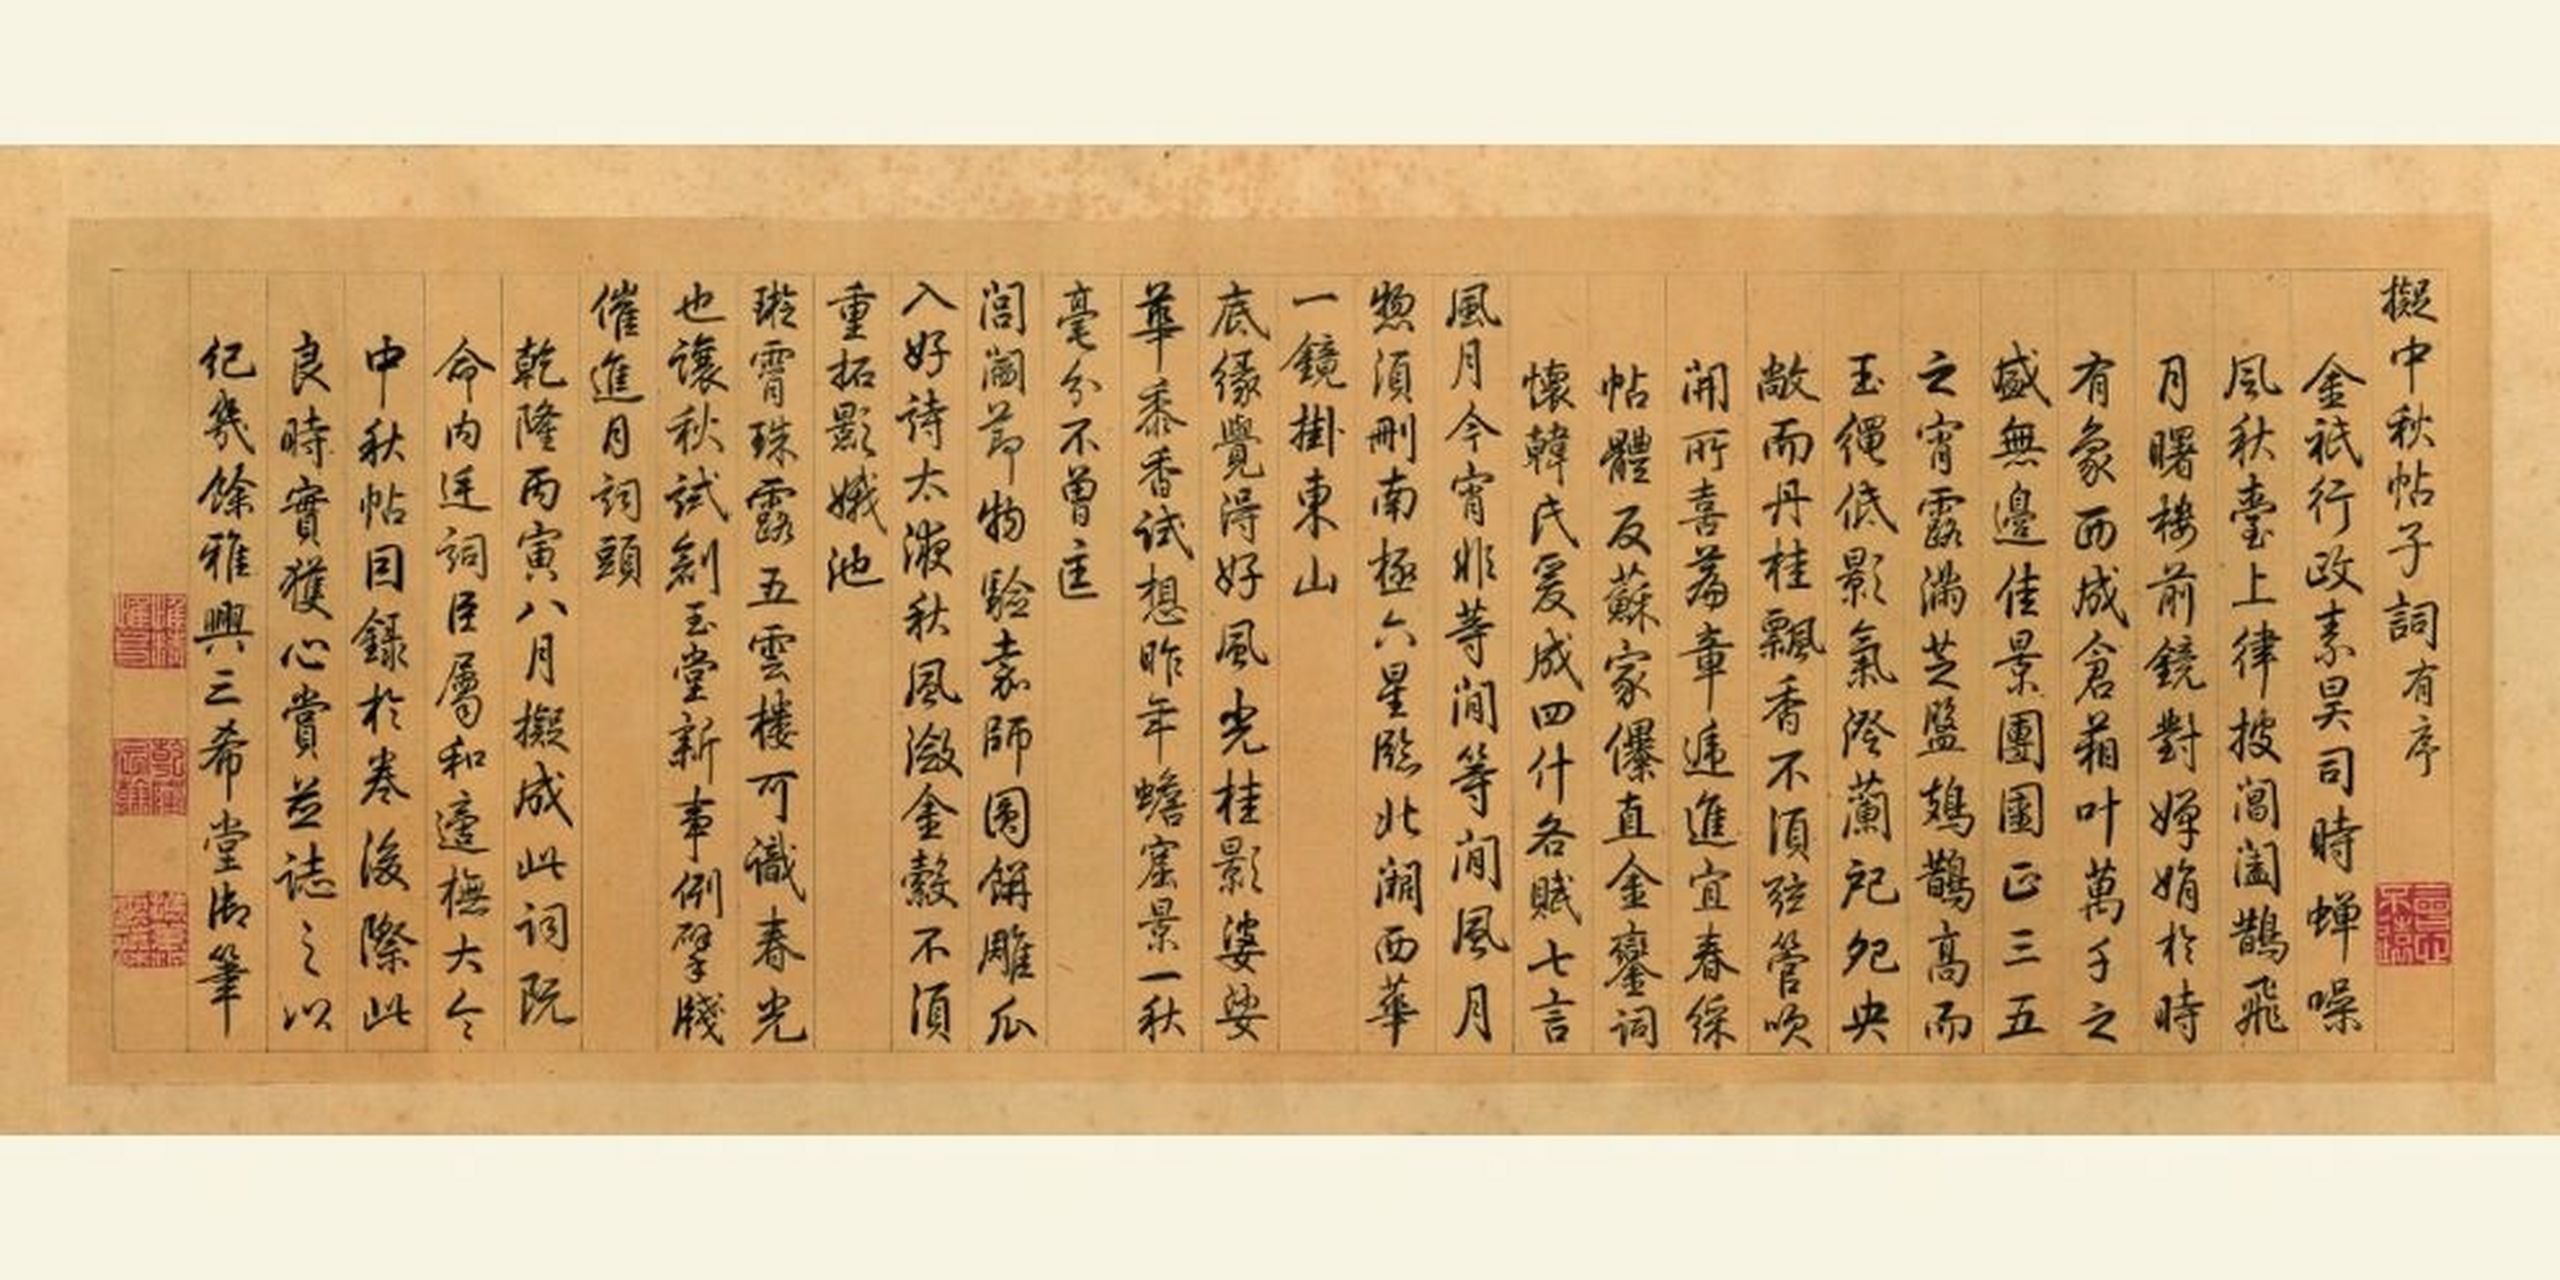 擬中秋帖子詞有序
金祇行政素昊司時蟬噪
風秋臺上律披閶闔鵲飛
月曙樓前鏡對嬋娟於時
有象西成倉箱叶萬千之
盛無邊佳景團圞正三五
之宵露滿芝盤鳷鵲高而
玉繩低影氣澄蘭戺兜央
敞而丹桂飄香不須弦管吹
開所喜篇章遞進宜春綵
帖體反蘇家儤直金鑾詞
懷韓氏爰成四什各賦七言
風月今宵非等閒等閒風月
惣須刪南極六星臨北澗西華
一鏡掛東山
底緣覺得好風光桂影婆娑
華黍香試想昨年蟾窟景一秋
毫分不曾㞷
閭闠節物驗素師圓餅雕瓜
入好詩太液秋風瀲金縠不須
重拓影娥池
璇霄珠露五雲樓可識春光
也讓秋試創玉堂新事例擘牋
催進月詞頭
乾隆丙寅八月擬成此詞既
命內廷詞臣屬和適撫大令
中秋帖因錄於卷後際此
良時實獲心賞並誌之以
紀幾餘雅興三希堂御筆